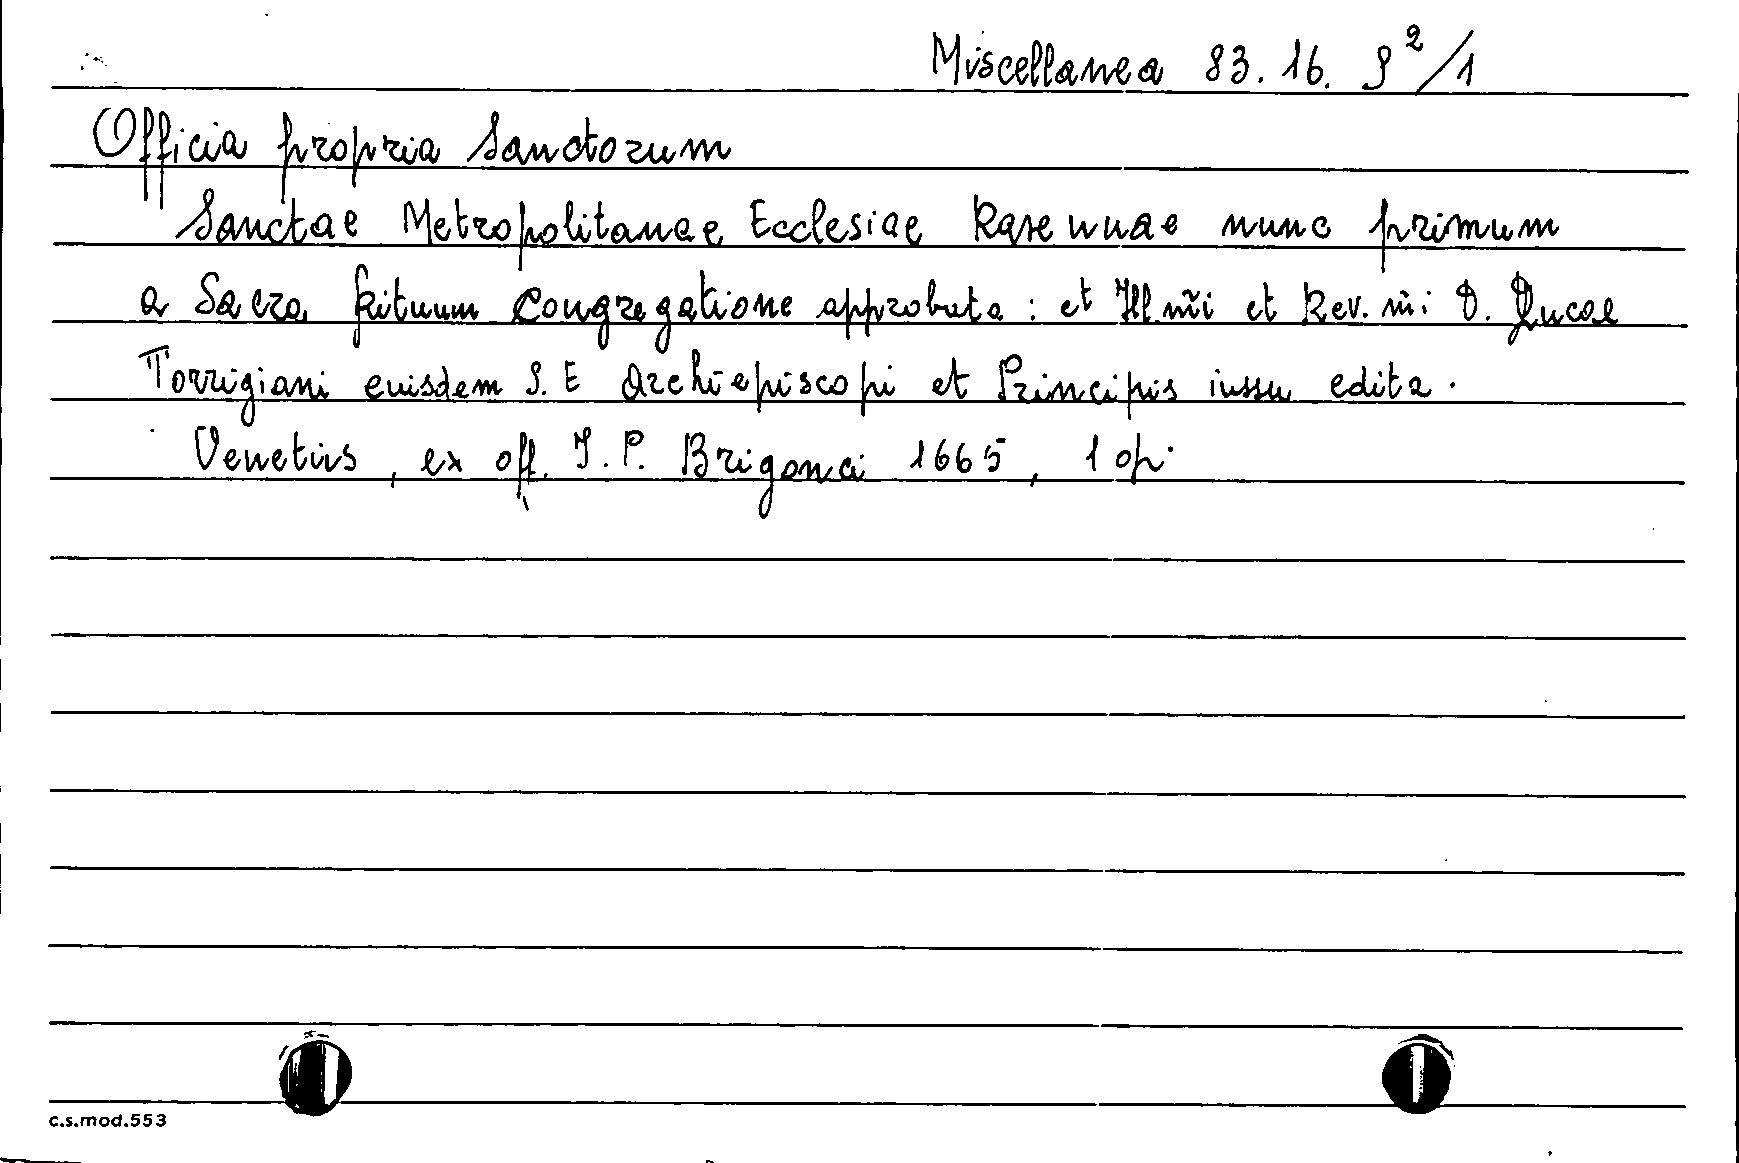 Miscellanea 83. 16. S²/1
Officia propria Sanctorum
Sanctae Metropolitanae Ecclesiae Ravennae nunc primum
a Sacra Rituum Congregatione approbata : et Ill.m̃i et Rev. m̃i D. Lucae
Torrigiani euisdem S. E Archiepiscopi et Principis iussu edita.
Venetiis, ex off. I. P. Brigonci 1665, 1 op.
c.s.mod.553